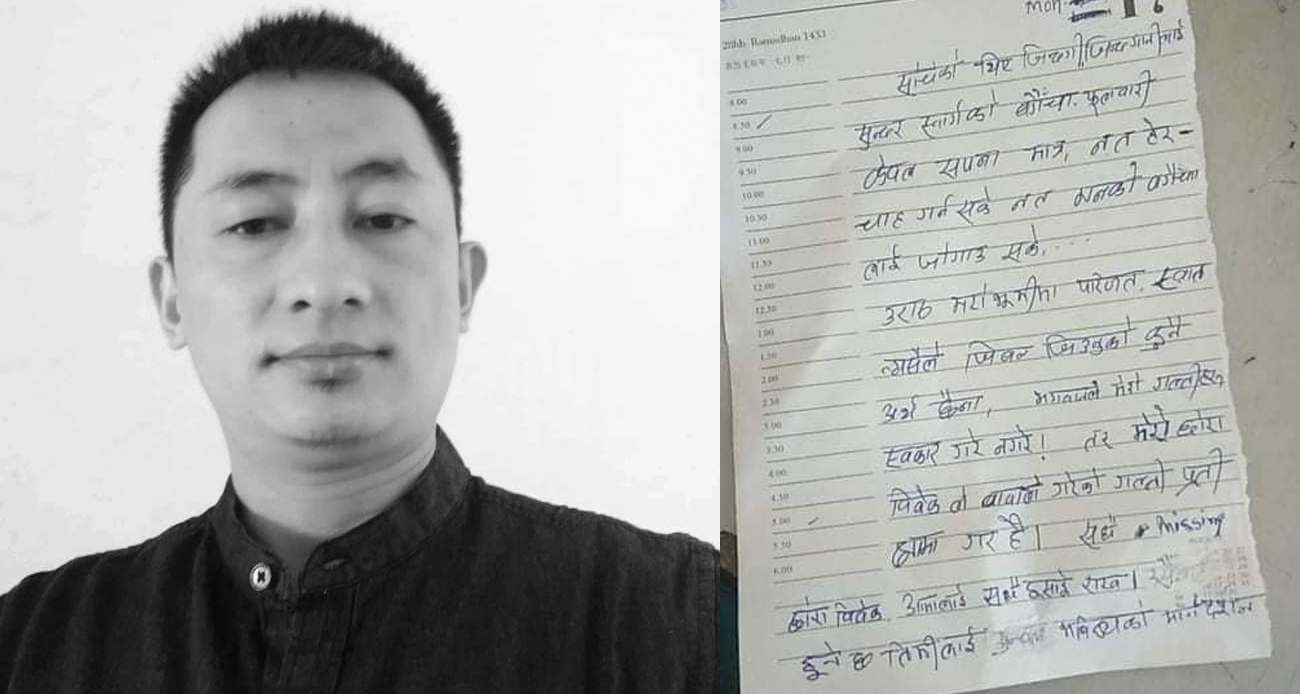 Mon
28th Ramadhan 1433
8.00
सोचेको थिए जिन्दगी/जिन्दगानीलाई
8.30
सुन्दर स्वर्गको बगैंचा. फूलबारी
9.00
केवल सपना मात्र, न त हेर-
9.30
10.00
चाह गर्न सके न त मनको बगैंचा
10.30
11.00
लाई जोगाउ सके....
11.30
12.00
उराठ मरुभूमीमा परिणत.
12.30
1.00
त्यसैले जिवन जिउनुको कुनै
1.30
2.00
अर्थ छैना, भगवानले मेरो गल्तीहरु
2.30
3.00
स्वकार गरे नगरे! तर मेरो छोरा
3.30
4.00
विवेक बाबाले गरेको गल्ती प्रती
4.30
5.00
क्षमा गर है। सधै missing
5.30
6.00
छोरा विवेक. आमालाई सधै हसाई राख।
हुने छ तिमीलाई भविष्यको मार्गदर्शन